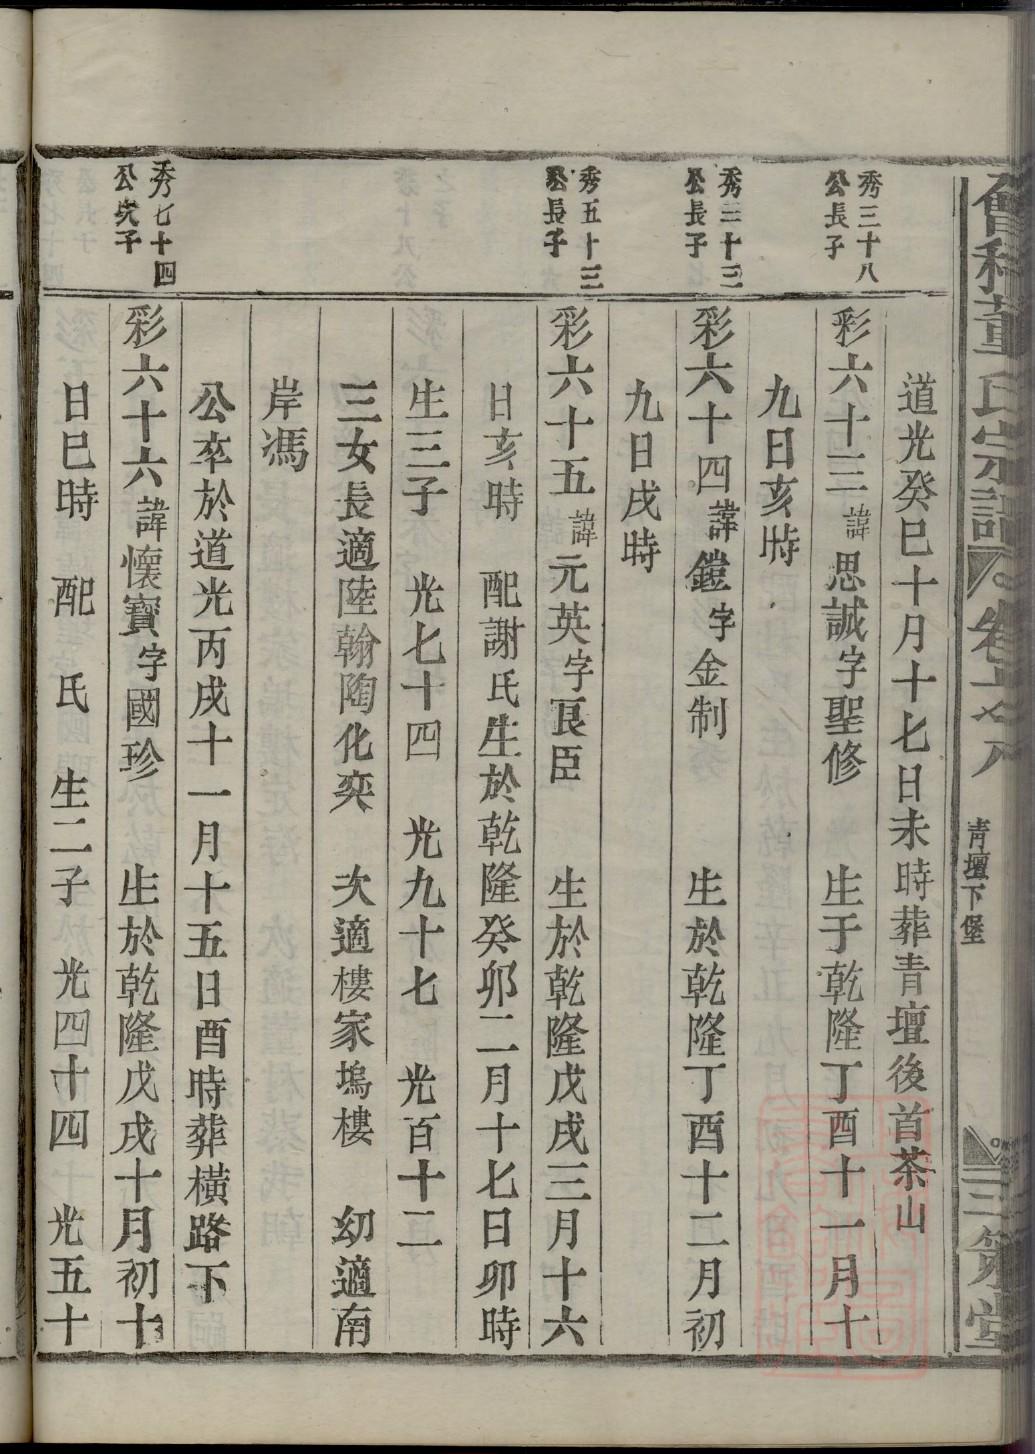 會稽董氏宗譜
卷
青壇下堡
三策堂
道光癸巳十月十七日未時葬青壇後首茶山
秀三十八
公長子
彩六十三諱思誠字聖修 生于乾隆丁酉十一月十
九日亥時
秀三十三
公長子
彩六十四諱鎧字金制 生於乾隆丁酉十二月初
九日戌時
秀五十三
公長子
彩六十五諱元英字良臣 生於乾隆戊戌三月十六
日亥時 配謝氏生於乾隆癸卯二月十七日卯時
生三子 光七十四 光九十七 光百十二
三女長適陸翰陶化奕 次適樓家塢樓 幼適南
岸馮
公卒於道光丙戌十一月十五日酉時葬橫路下
秀七十四
公次子
彩六十六諱懷寶字國珍 生於乾隆戊戌十月初十
日巳時 配 氏 生二子 光四十四 光五十